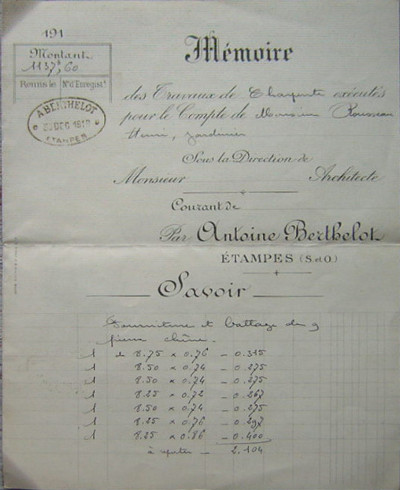 191
Mémoire
Montant
1137,60
Remis le N° d'Enregist.
des Travaux de Charpente exécutés
pour le Compte de Monsieur Rousseau
Henri, jardinier
A. BERTHELOT
DEC 1918
ETAMPES
Sous la Direction de
Monsieur Architecte
Courant de
Par Antoine Berthelot
ÉTAMPES (S. et O.)
Savoir
Fourniture et battage de 9
pieux chêne.
1 de 8.75 x 0.76 - 0.315
1 8.50 x 0.74 - 0.275
1 8.50 x 0.74 - 0.275
1 8.25 x 0.72 - 0.267
1 8.50 x 0.74 - 0.275
1 8.25 x 0.76 - 0.297
1 8.25 x 0.86 - 0.400
à reporter - 2.104